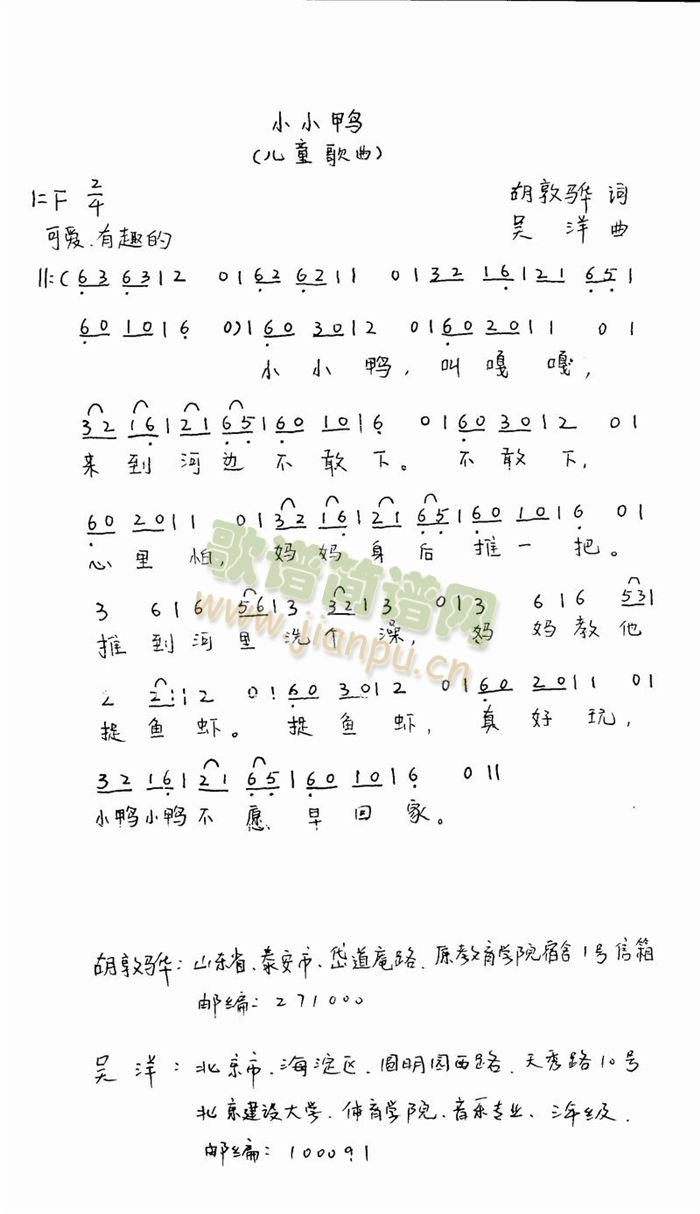 小小鸭
(儿童歌曲)
1=F 2/4
胡敦骅 词
可爱、有趣的
吴 洋 曲
||:( 6 3 6 3 | 2 0 | 6 2 6 2 | 1 0 | 3 2 1 6 | 2 1 6 5 |
6 0 1 0 | 6 0 ) | 6 0 3 0 | 2 0 | 6 0 2 0 | 1 0 |
小 小 鸭， 叫 嘎 嘎，
3 2 1 6 | 2 1 6 5 | 6 0 1 0 | 6 0 | 6 0 3 0 | 2 0 |
来 到 河 边 不 敢 下。 不 敢 下，
6 0 2 0 | 1 0 | 3 2 1 6 | 2 1 6 5 | 6 0 1 0 | 6 0 |
心 里 怕， 妈 妈 身 后 推 一 把。
3 6 | 6 5 6 | 3 3 2 | 3 0 | 3 6 | 6 5 3 |
推 到 河 里 洗 个 澡， 妈 妈 教 他
2 2 1 | 2 0 | 6 0 3 0 | 2 0 | 6 0 2 0 | 1 0 |
捉 鱼 虾。 捉 鱼 虾， 真 好 玩，
3 2 1 6 | 2 1 6 5 | 6 0 1 0 | 6 0 ||
小鸭小鸭不 愿 早 回 家。
歌谱简谱网
www.jianpu.cn
胡敦骅：山东省、泰安市、岱道庵路、原教育学院宿舍1号信箱
邮编：271000
吴 洋：北京市、海淀区、圆明园西路、天秀路10号
北京建设大学、体育学院、音乐专业、三年级.
邮编：100091